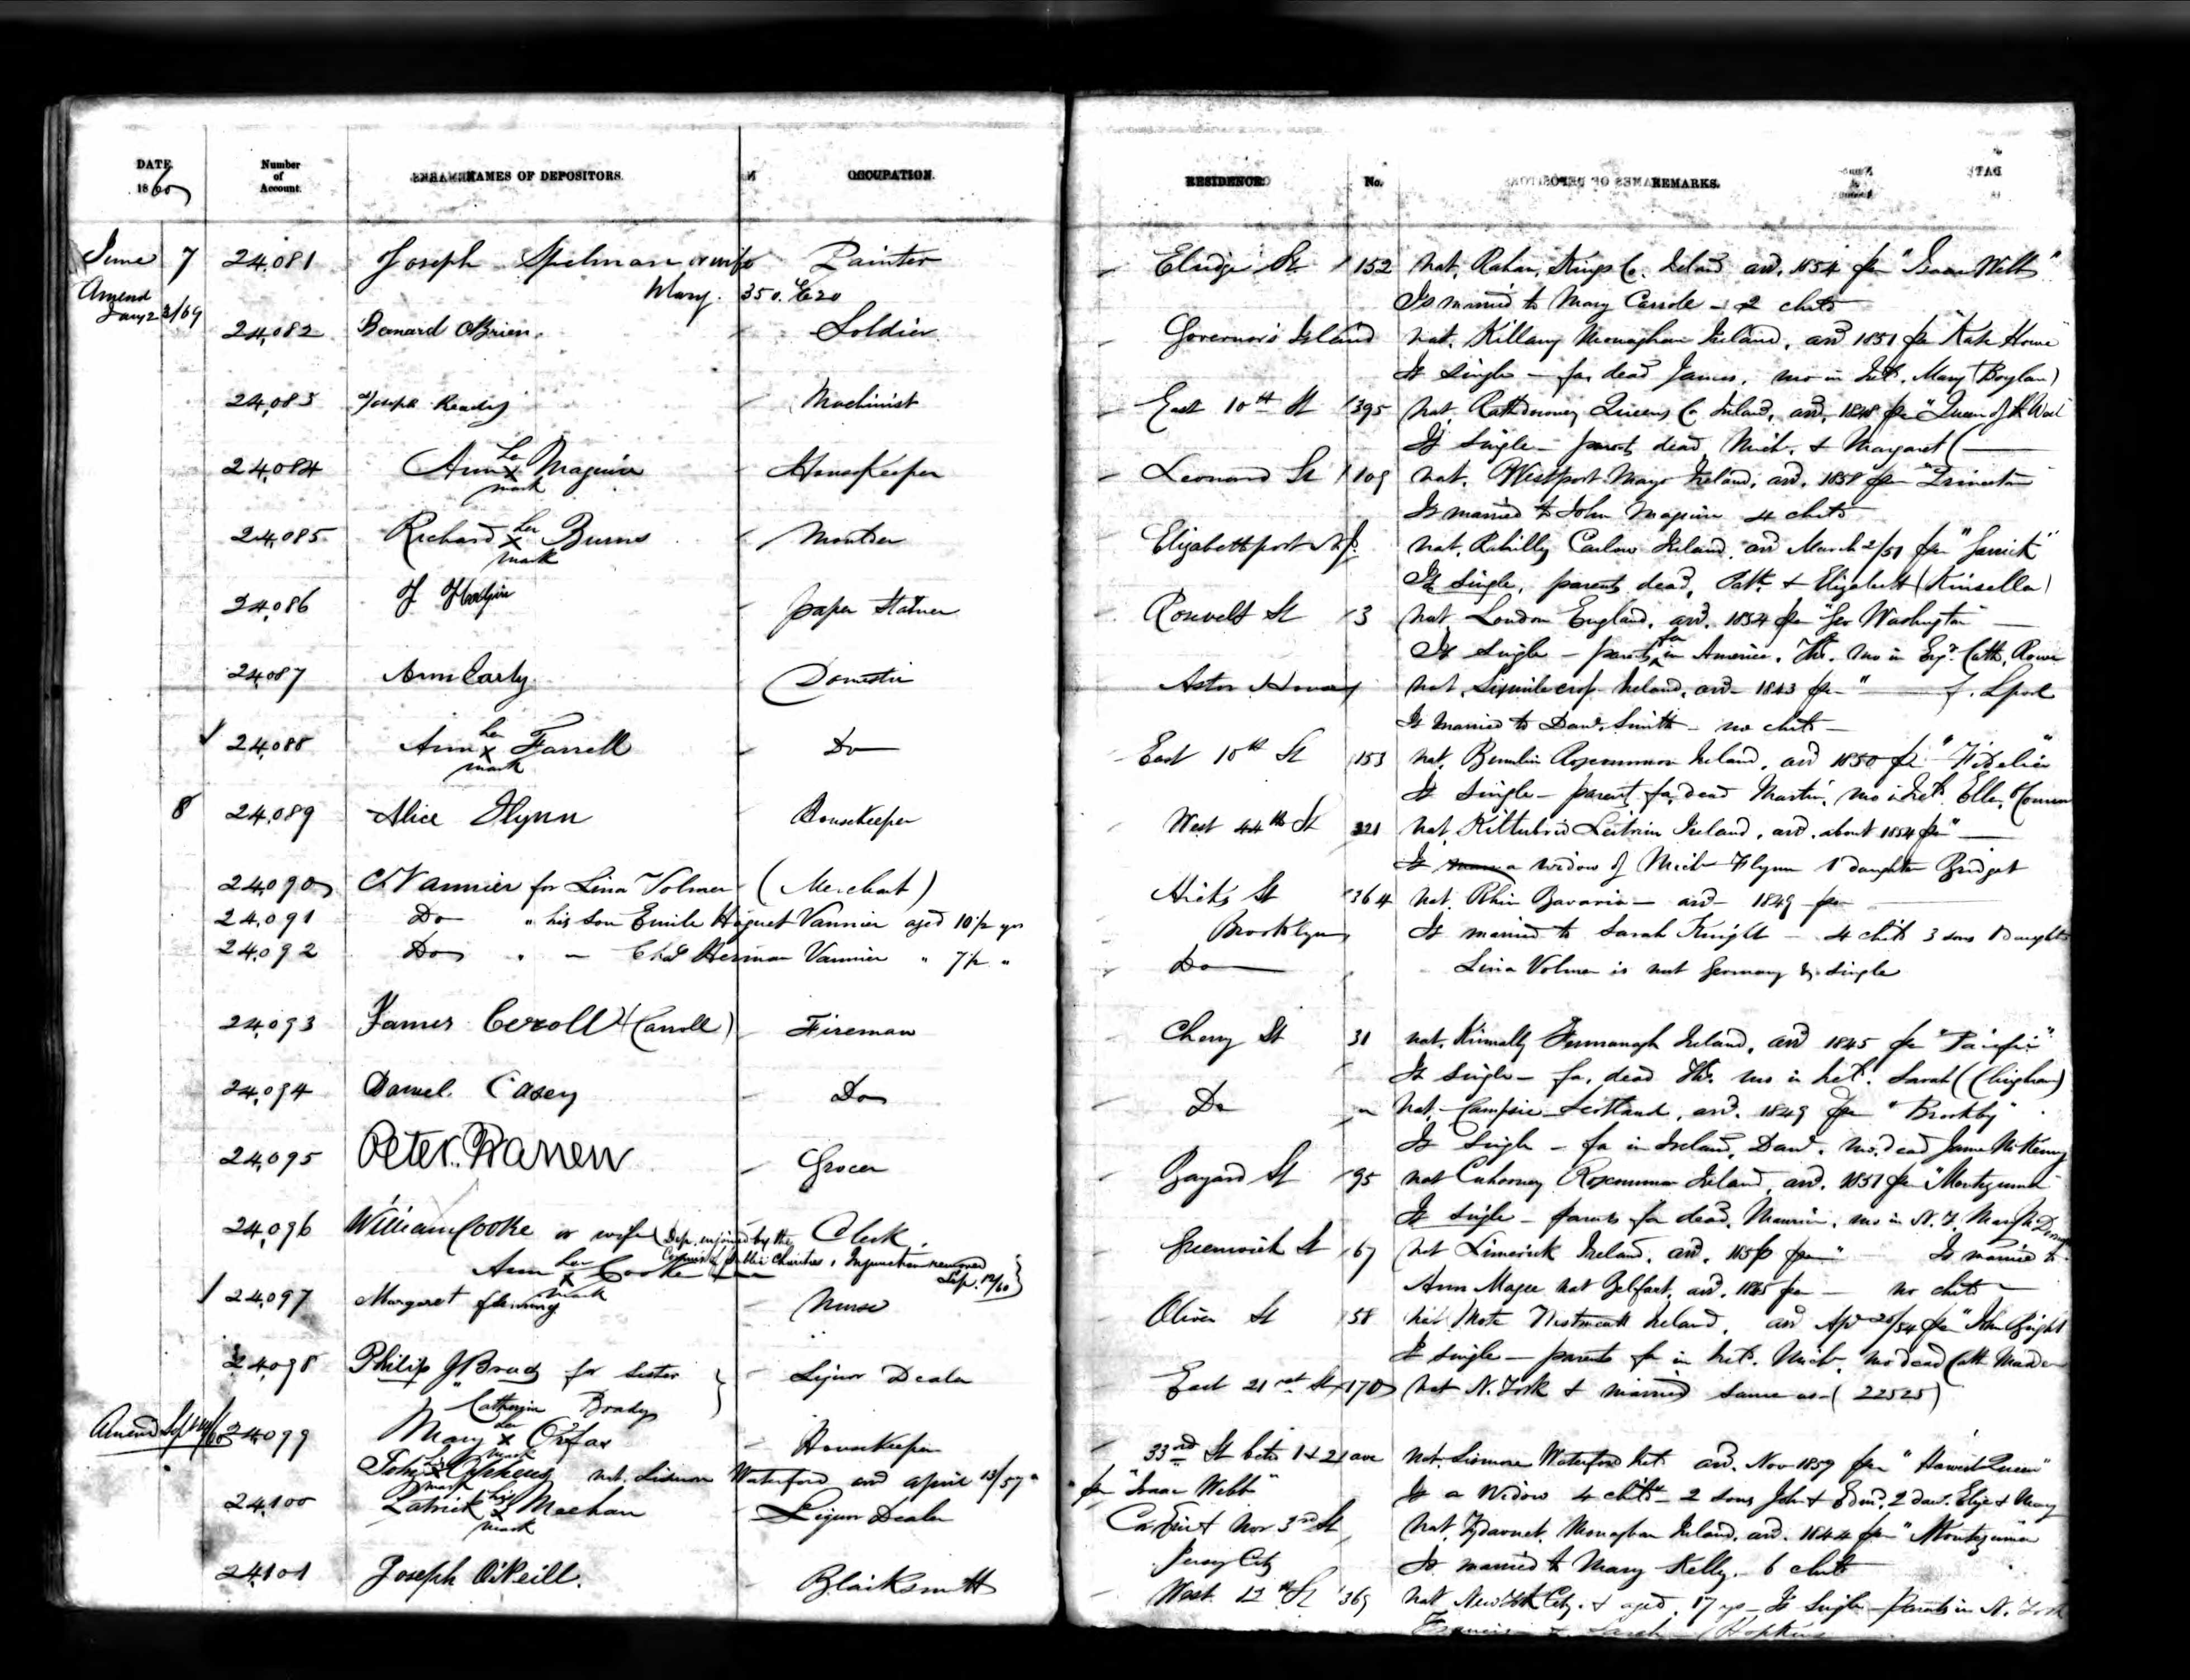 DATE 1860
Number of Account.
NAMES OF DEPOSITORS.
OCCUPATION.
RESIDENCE
No.
REMARKS.
June 7 24,081 Joseph Spelman or wife Painter Elridge St 152 nat. Rahan, Kings Co. Ireland arr. 1854 per "Isaac Webb"
Mary. 350. E20 Is married to Mary Carrole - 2 chn
Amend Jany 23/69
24,082 Bernard O'Brien. Soldier Governor's Island nat. Killany Monaghan Ireland, arr 1851 per "Kate Howe"
Is single - fa, dead James, mo in Ireld. Mary (Boylan)
24,083 Joseph Ready Machinist East 10th St 395 nat. Rathdowney Queens Co Ireland, arr. 1848 per "Queen of the West"
Is single - parents dead, Mich. & Margaret (
24,084 Ann her x mark Maguire Housekeeper Leonard St 109 nat. Westport Mayo Ireland, arr. 1858 per
Is married to John Maguire 4 chn
24,085 Richard x mark Burns Moulder Elizabethport N.J. nat. Rahilly Carlow Ireland, arr March 2/51 per "Garrick"
Is single, parents dead, Patk. & Elizabeth (Kinsella)
24,086 J Paper Stainer Rosevelt St 3 nat. London England, arr. 1854 per "Geo Washington"
Is single - fa in America, Ths. mo in Engd. Cath.
24,087 Ann Carly Domestic Astor House nat. Ireland, arr - 1843 per " f. Lpool
Is married to Danl. Smith - no chn -
24,088 Ann her x mark Farrell Do East 10th St 153 nat. Roscommon Ireland, arr 1850 per "Fidelia"
Is single - parents fa, dead Martin, mo in Ireld. Ellen
8 24,089 Alice Flynn Housekeeper West 44th St 321 nat. Kiltubrid Leitrim Ireland, arr. about 1854 per "
Is a widow of Mich Flynn 1 daughter Bridget
24,090 C. Vannier for Lina Volmer (Merchant) Hicks St 364 nat. Rhine Bavaria - arr - 1849 per
24,091 Do " his son Emile Huguet Vannier aged 10½ yrs Brooklyn Is married to Sarah Knight - 4 chn 3 sons 1 daughter
24,092 Do " - Chas Herman Vannier " 7½ " Do Lina Volmer is nat Germany & single
24,093 James Ceroll (Carroll) Fireman Cherry St 31 nat. Kinnally Fermanagh Ireland, arr 1845 per "Pacific"
Is single - fa, dead Ths. mo in Ireld. Sarah
24,094 Daniel Casey Do Do " nat. Campsie Scotland, arr. 1849 per "Brooksby"
Is single - fa in Ireland, Danl. mo. dead Jane McKenny
24,095 Peter Warren Grocer Bayard St 95 nat Roscommon Ireland, arr. 1851 per "Montezuma"
Is single - parents fa dead, mo in N.Y.
24,096 William Cooke or wife Clerk. Greenwich St 67 nat Limerick Ireland, arr. per " Is married to
Ann her x mark Cooke (Dep. enjoined by the Commrs of Public Charities, Injunction removed Sep. 12/60)
Ann Magee nat Belfast, arr. 1845 per - no chn
24,097 Margaret Fleming Nurse Oliver St 58 nat Mote Westmeath Ireland, arr Apl 20/54 per "John Bright"
Is single - parents fa in Ireld. Mich. mo dead Cath Madden
24,098 Philip J Brady for sister Liquor Dealer East 21st St 170 nat N. York & married same as (22525)
Catherine Brady
Amend 24,099 Mary her x mark Housekeeper 33rd St betn 1 & 2d ave nat. Lismore Waterford Ireld. arr. Nov 1859 per "Harvest Queen"
John x mark nat. Lismore Waterford arr april 13/57 per "Isaac Webb" Is a Widow 4 chn - 2 sons John & Edmd. 2 dau. Eliza & Mary
24,100 Patrick his x mark Meehan Liquor Dealer Cor Erie & Nor 3rd St nat. Tydavnet Monaghan Ireland, arr. 1844 per "Montezuma"
Jersey City Is married to Mary Kelly. 6 chn
24,101 Joseph O'Neill. Blacksmith West 12th St 369 nat New York City & aged 17 yrs - Is single - parents in N. York
Francis & Sarah (Hopkins